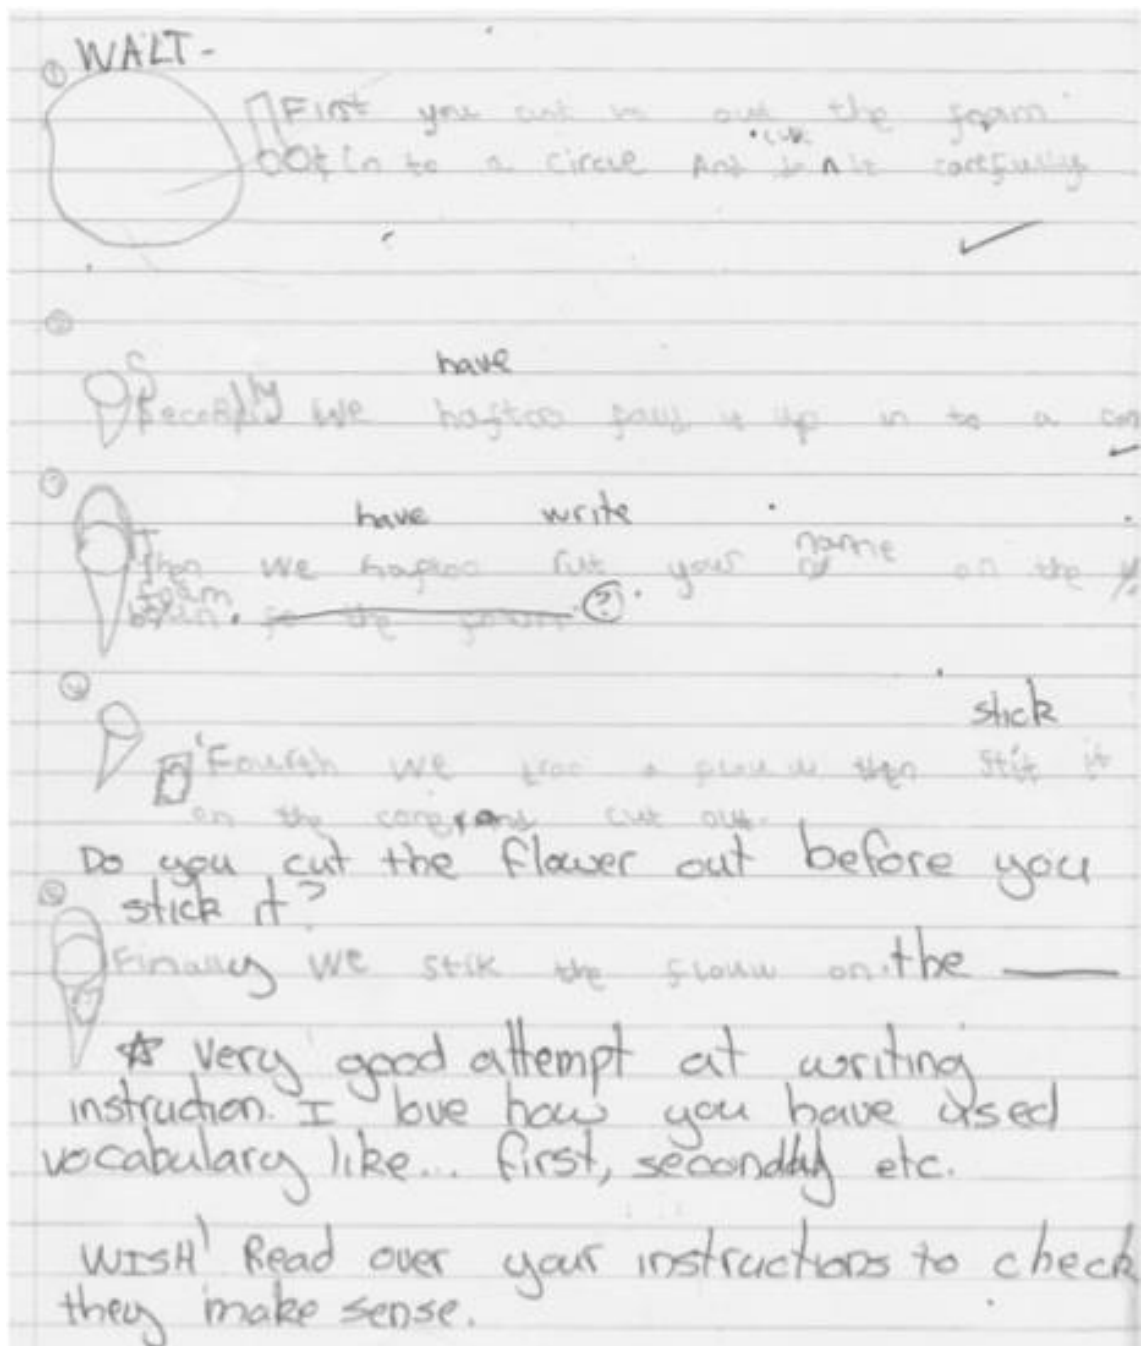 ① WALT -
First you cut out the foam
in to a circle And cut it carefully
②
have
Secondly we haftoo up in to a con
③
have write
Then we haftoo your name on the
foam
the ?
④
stick
Fourth we a then it
on the cone and cut out.
Do you cut the flower out before you
stick it?
⑤
Finally we stik the on. the
☆ very good attempt at writing
instruction. I love how you have used
vocabulary like... first, secondly etc.
WISH! Read over your instructions to check
they make sense.